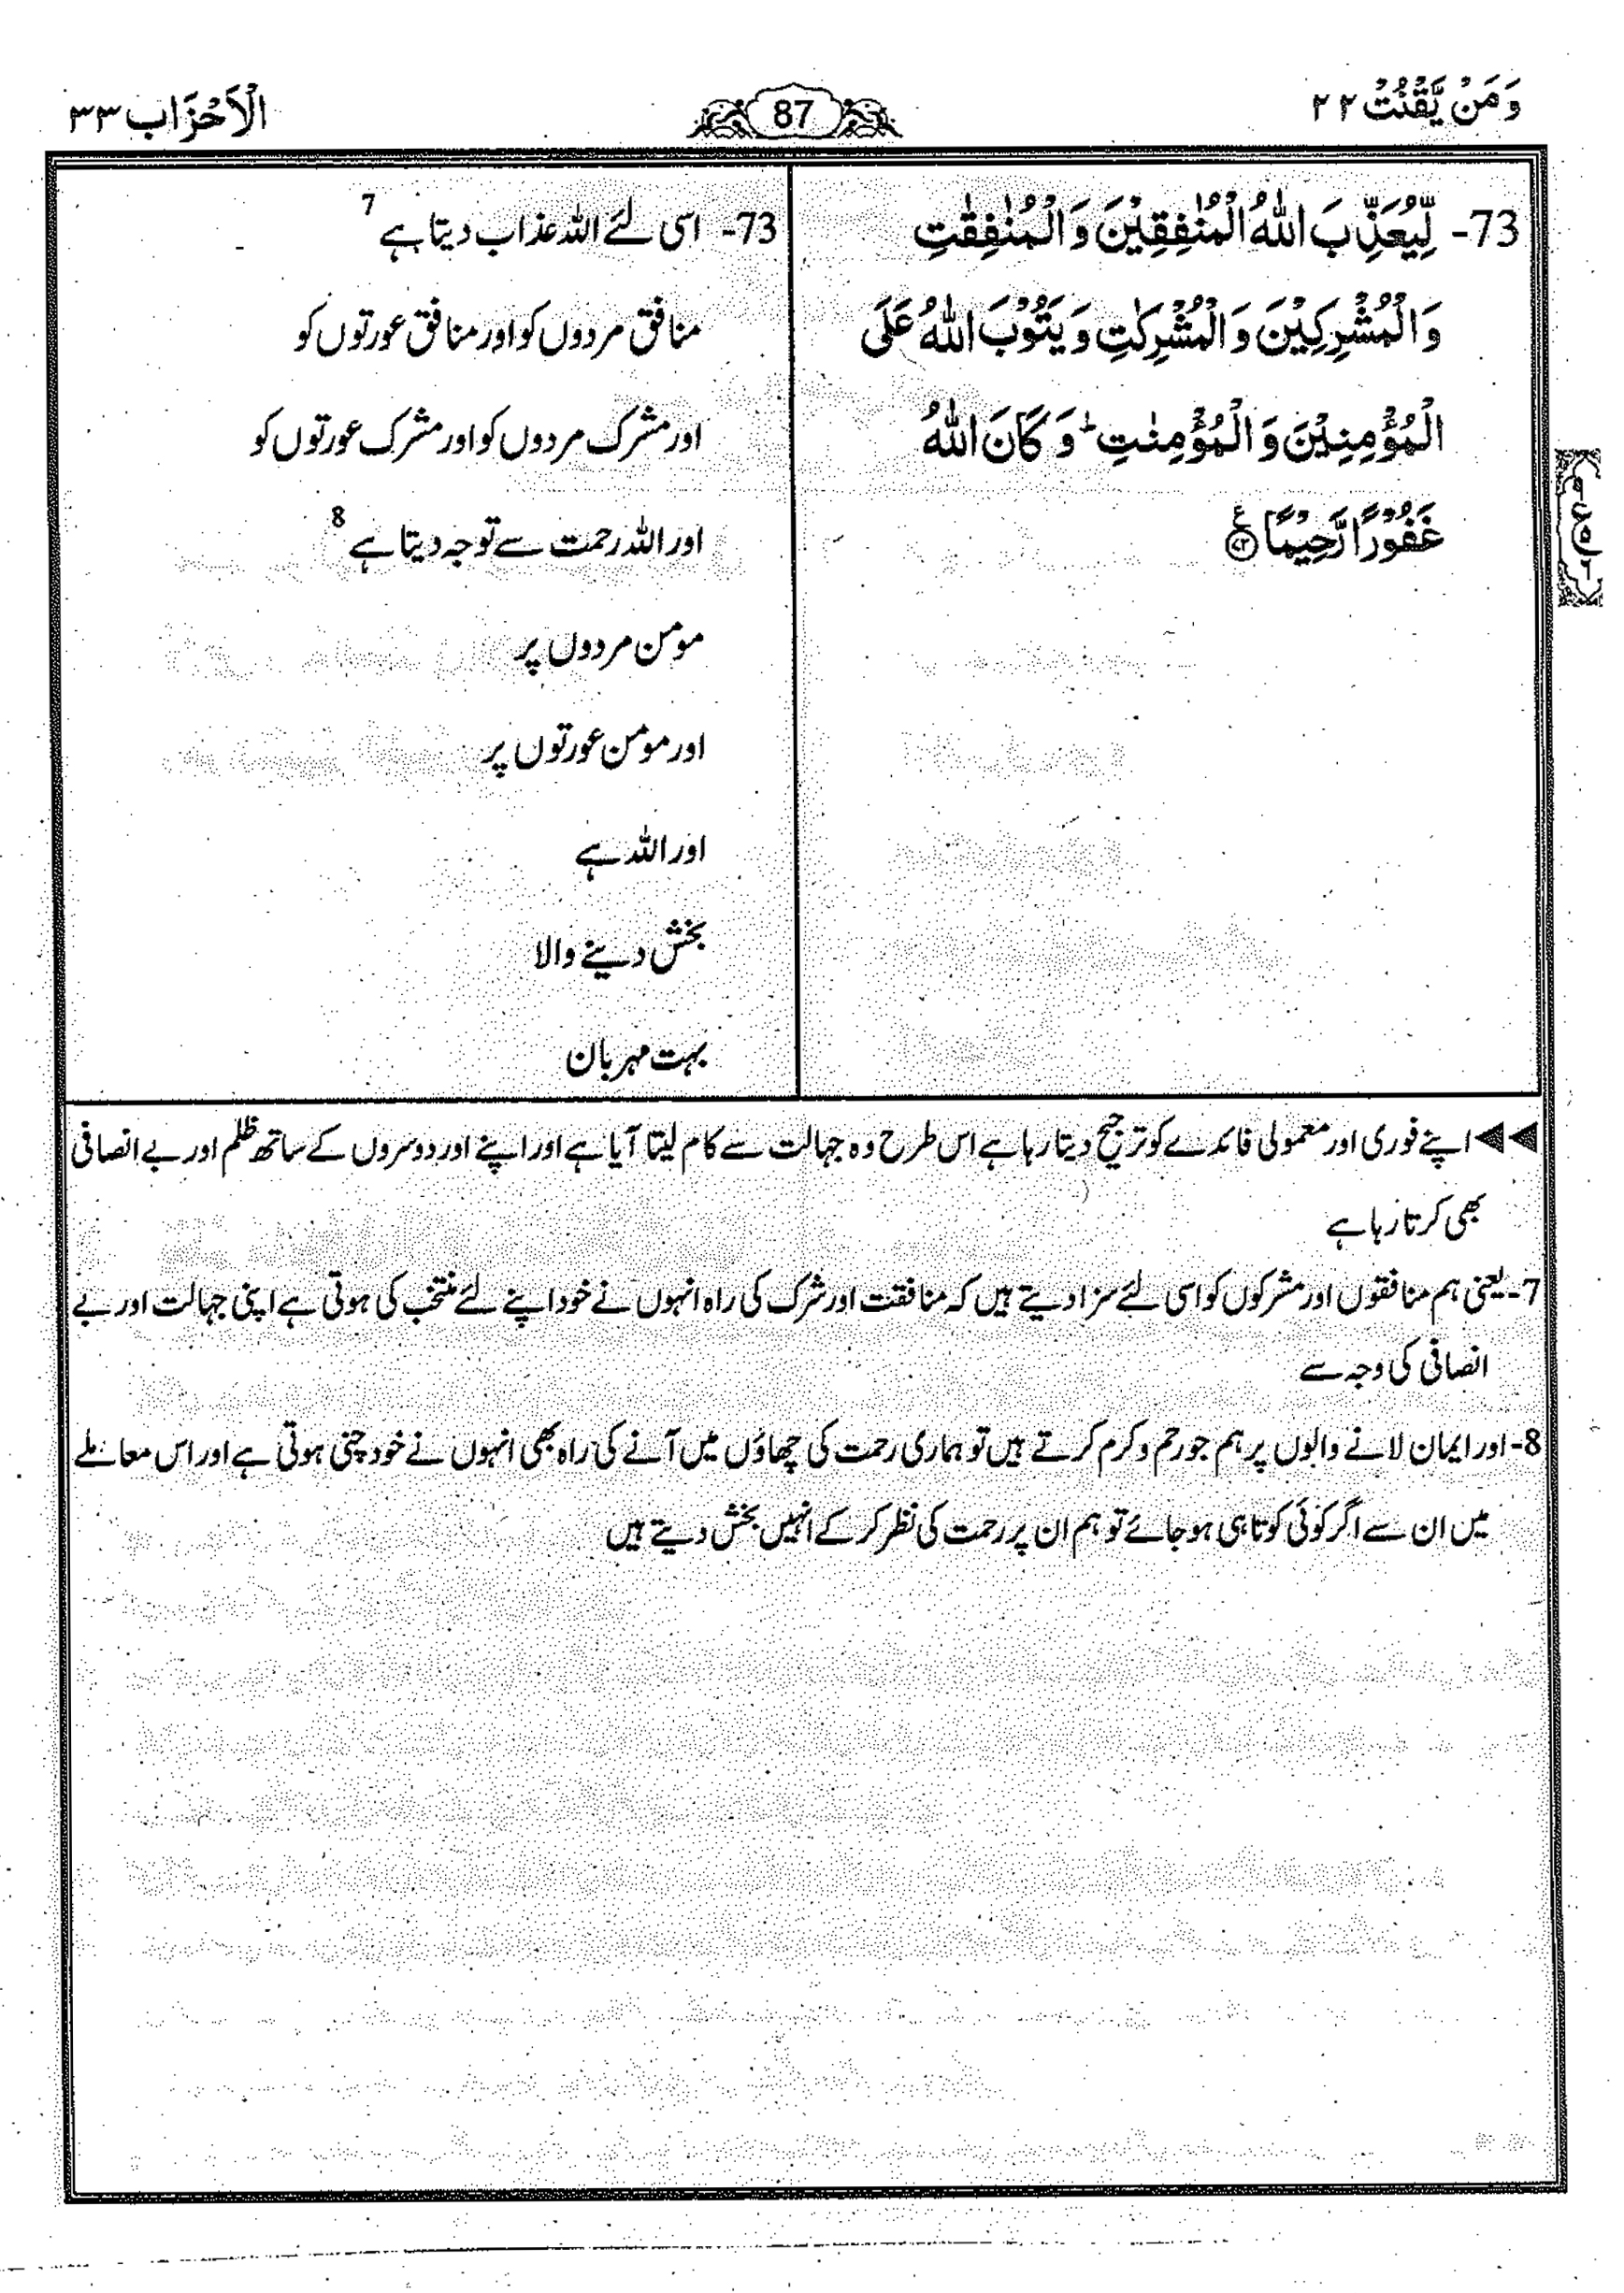 وَمَنْ يَّقْنُتْ ۲۲
87
الْاَحْزَاب ۳۳
73- لِّيُعَذِّبَ اللّٰهُ الْمُنٰفِقِيْنَ وَ الْمُنٰفِقٰتِ
وَ الْمُشْرِكِيْنَ وَ الْمُشْرِكٰتِ وَ يَتُوْبَ اللّٰهُ عَلَى
الْمُؤْمِنِيْنَ وَ الْمُؤْمِنٰتِ ؕ وَ كَانَ اللّٰهُ
غَفُوْرًا رَّحِيْمًا ۧ ﴿۷۳﴾
73- اسی لئے اللہ عذاب دیتا ہے 7
منافق مردوں کو اور منافق عورتوں کو
اور مشرک مردوں کو اور مشرک عورتوں کو
اور اللہ رحمت سے توجہ دیتا ہے 8
مومن مردوں پر
اور مومن عورتوں پر
اور اللہ ہے
بخش دینے والا
بہت مہربان
◀◀ اپنے فوری اور معمولی فائدے کو ترجیح دیتا رہا ہے اس طرح وہ جہالت سے کام لیتا آیا ہے اور اپنے اور دوسروں کے ساتھ ظلم اور بے انصافی
بھی کرتا رہا ہے
7- یعنی ہم منافقوں اور مشرکوں کو اسی لئے سزا دیتے ہیں کہ منافقت اور شرک کی راہ انہوں نے خود اپنے لئے منتخب کی ہوتی ہے اپنی جہالت اور بے
انصافی کی وجہ سے
8- اور ایمان لانے والوں پر ہم جو رحم و کرم کرتے ہیں تو ہماری رحمت کی چھاؤں میں آنے کی راہ بھی انہوں نے خود چنی ہوتی ہے اور اس معاملے
میں ان سے اگر کوئی کوتاہی ہو جائے تو ہم ان پر رحمت کی نظر کر کے انہیں بخش دیتے ہیں